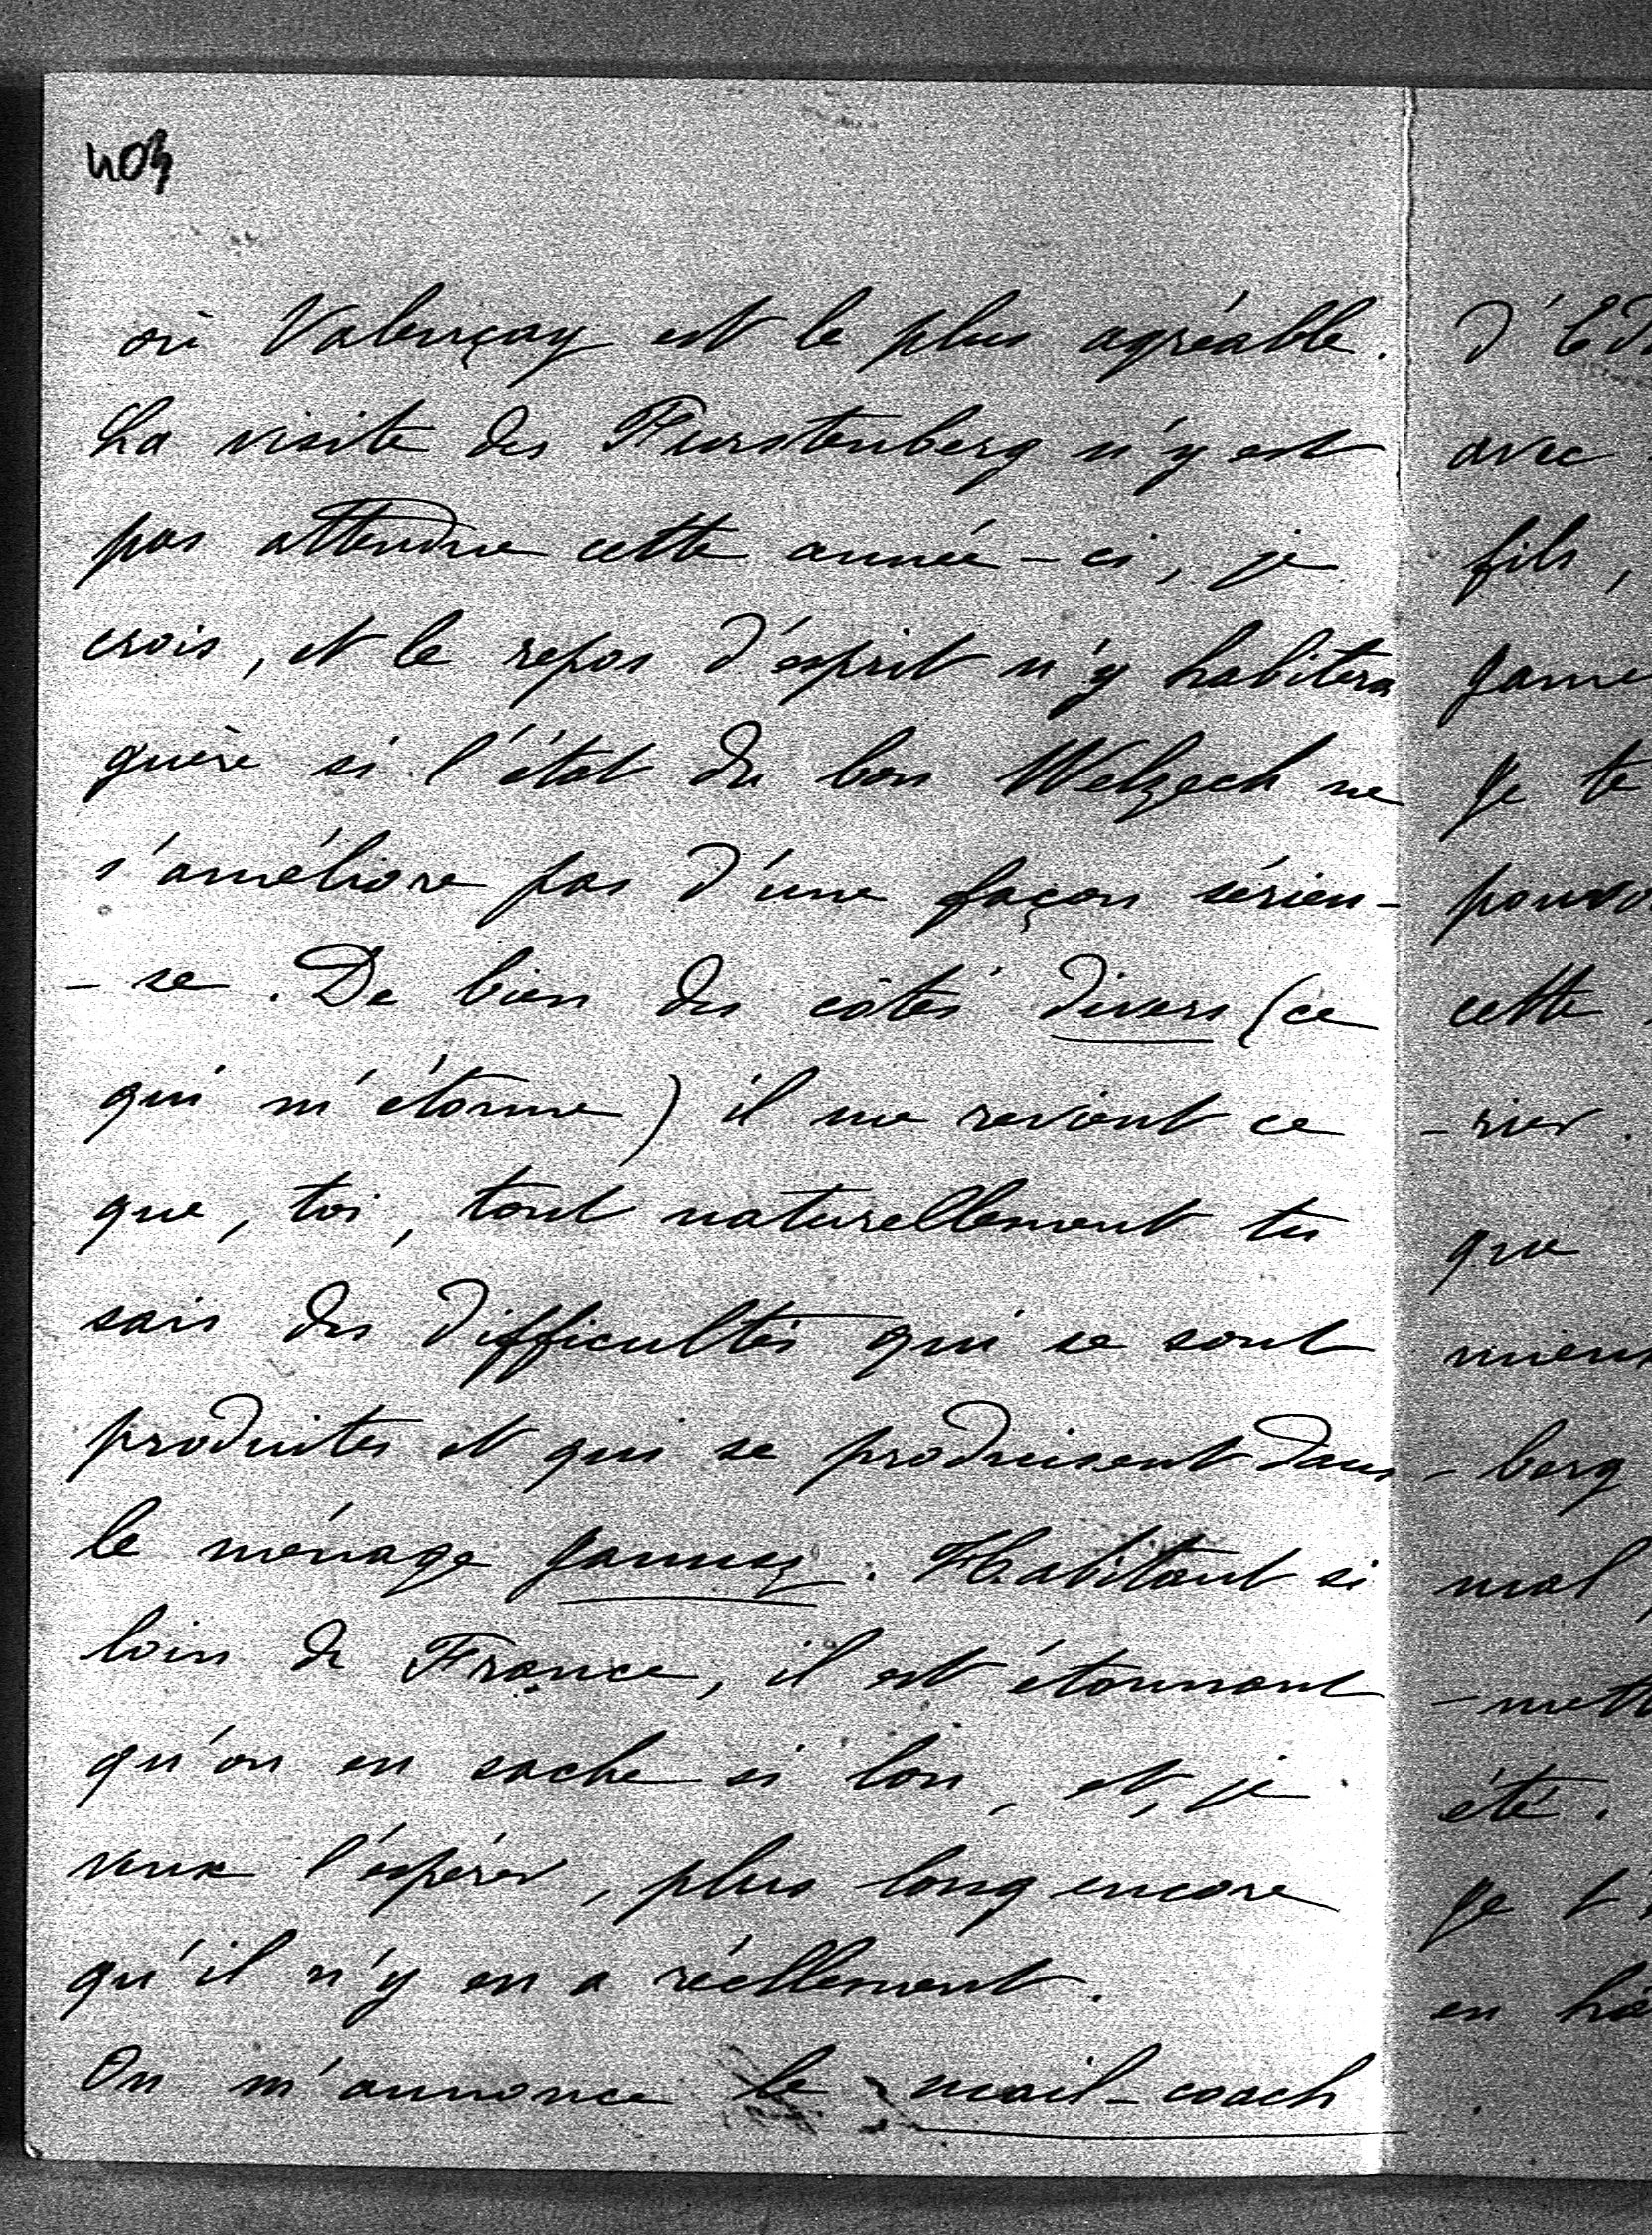 403
où Valençay est le plus agréable.
La visite des Furstenberg n'y est
pas attendue cette année-ci, je
crois, et le repos d'esprit n'y habitera
guère si l'état du bon Welzeck ne
s'améliore pas d'une façon sérieu-
-se. De bien des côtés divers (ce
qui m'étonne) il me revient ce
que, toi, tout naturellement tu
sais des difficultés qui se sont
produites et qui se produisent dans
le ménage Jaunez. Habitant si
loin de France, il est étonnant
qu'on en sache si loin, et, je
veux l'espérer, plus long encore
qu'il n'y en a réellement.
On m'annonce le mail-coach
avec
fils,
Je te
cette
-rier.
que
-berg
mal,
été.
Je t
en